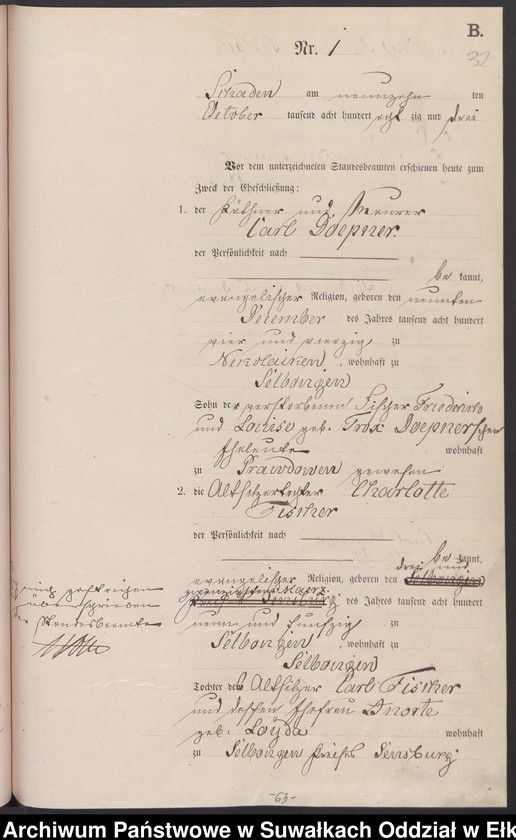 B.
32
Nr. 1
Schaden am neunzehn ten
October tausend acht hundert acht zig und drei
Vor dem unterzeichneten Standesbeamten erschienen heute zum
Zweck der Eheschließung:
1. der Käthner und Maurer
Carl Doepner.
der Persönlichkeit nach
be kannt,
evangelischer Religion, geboren den neunten
Dezember des Jahres tausend acht hundert
vier und vierzig, zu
Nikolaiken, wohnhaft zu
Selbongen
Sohn der verstorbenen Fischer Friedrich
und Louise geb. Trox Doepner'schen
Eheleute wohnhaft
zu Prawdowen gewesen
2. die Altsitzertochter Charlotte
Fischer
der Persönlichkeit nach
be kannt,
evangelischer Religion, geboren den drei und
zwanzigsten Maerz des Jahres tausend acht hundert
neun und fünfzig zu
Selbongen, wohnhaft zu
Selbongen
Tochter des Altsitzer Carl Fischer
und dessen Ehefrau
geb: Loyda wohnhaft
zu Selbongen Kreises Sensburg
gestrichen
überschrieben
Standesbeamte
-63-
Archiwum Państwowe w Suwałkach Oddział w Ełk